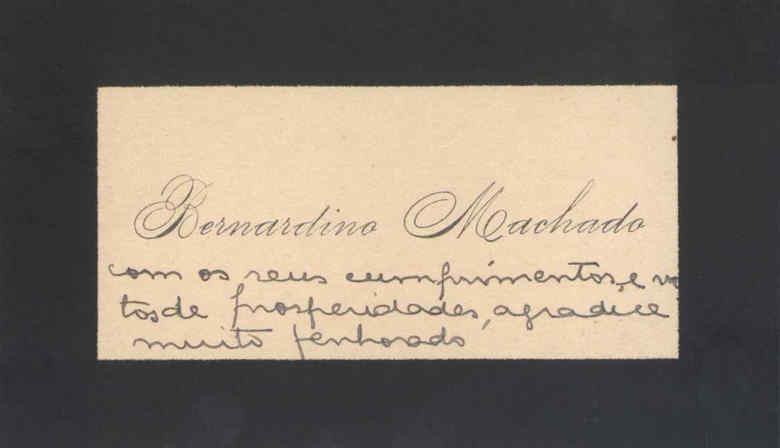 Bernardino Machado
com os seus cumprimentos, e vo
tos de prosperidades, agradece
muito penhorado